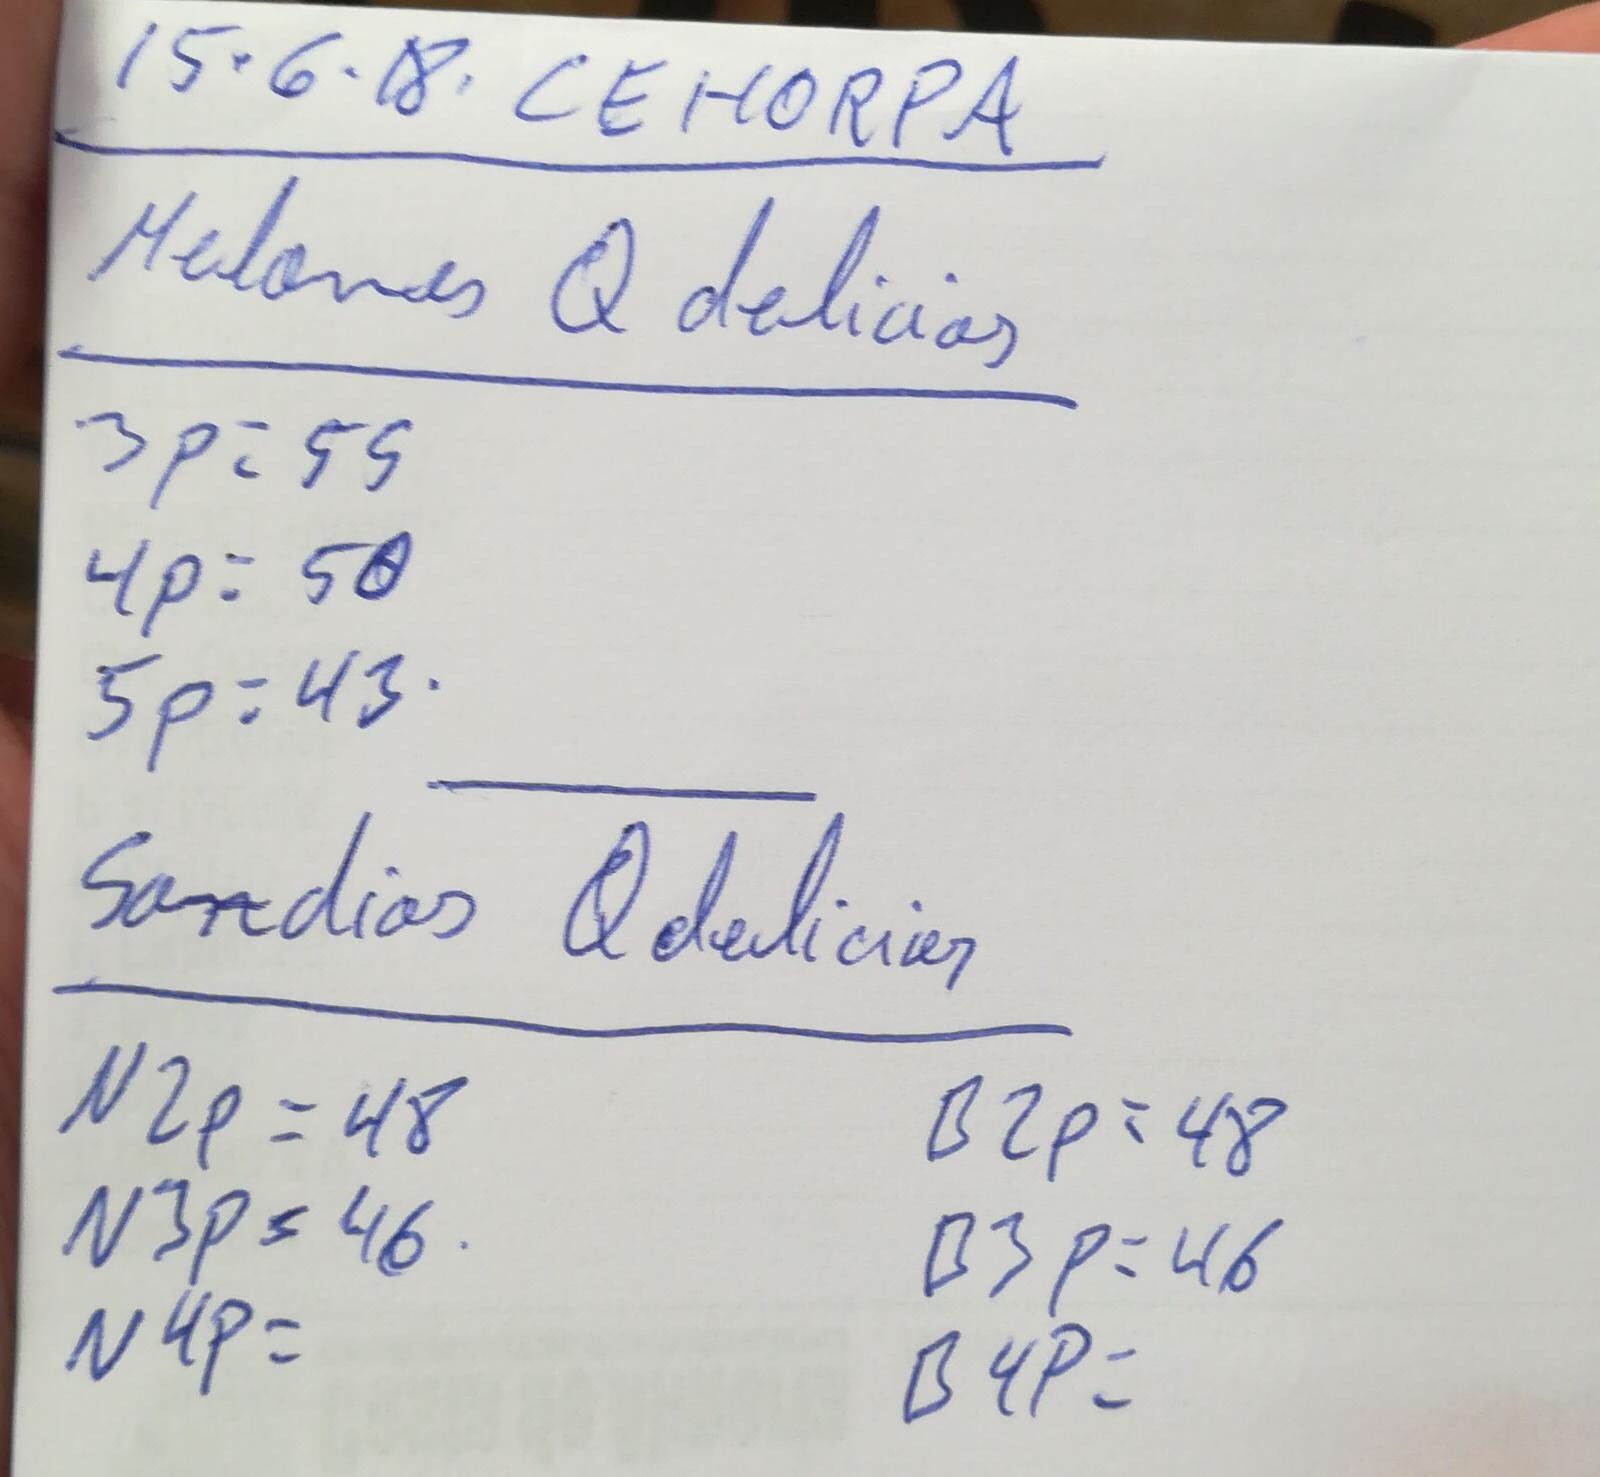 15.6.18. CEHORPA
Melones Q delicias
3p=55
4p=50
5p=43.
Sandias Q delicias
N2p=48 B2p=48
N3p=46. B3p=46
N4P= B4P=